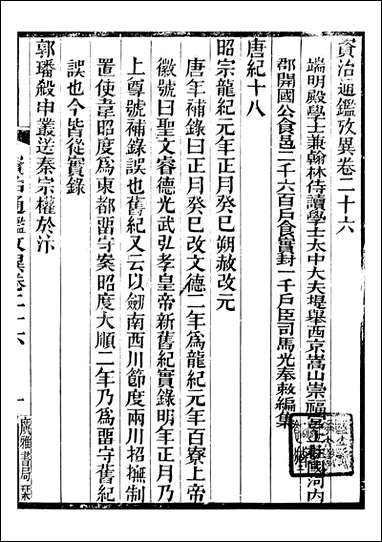 資治通鑑攷異卷二十六
端明殿學士兼翰林侍讀學士太中大夫提舉西京嵩山崇福宮上柱國河內
郡開國公食邑二千六百戶食實封一千戶臣司馬光奉敕編集
唐紀十八
昭宗龍紀元年正月癸巳朔赦改元
唐年補錄曰正月癸巳改文德二年爲龍紀元年百寮上帝
徽號曰聖文睿德光武弘孝皇帝新舊紀實錄明年正月乃
上尊號補錄誤也舊紀又云以劒南西川節度兩川招撫制
置使韋昭度爲東都畱守案昭度大順二年乃爲畱守舊紀
誤也今皆從實錄
郭璠殺申叢送秦宗權於汴
資治通鑑攷異卷二十六
一
廣雅書局栞